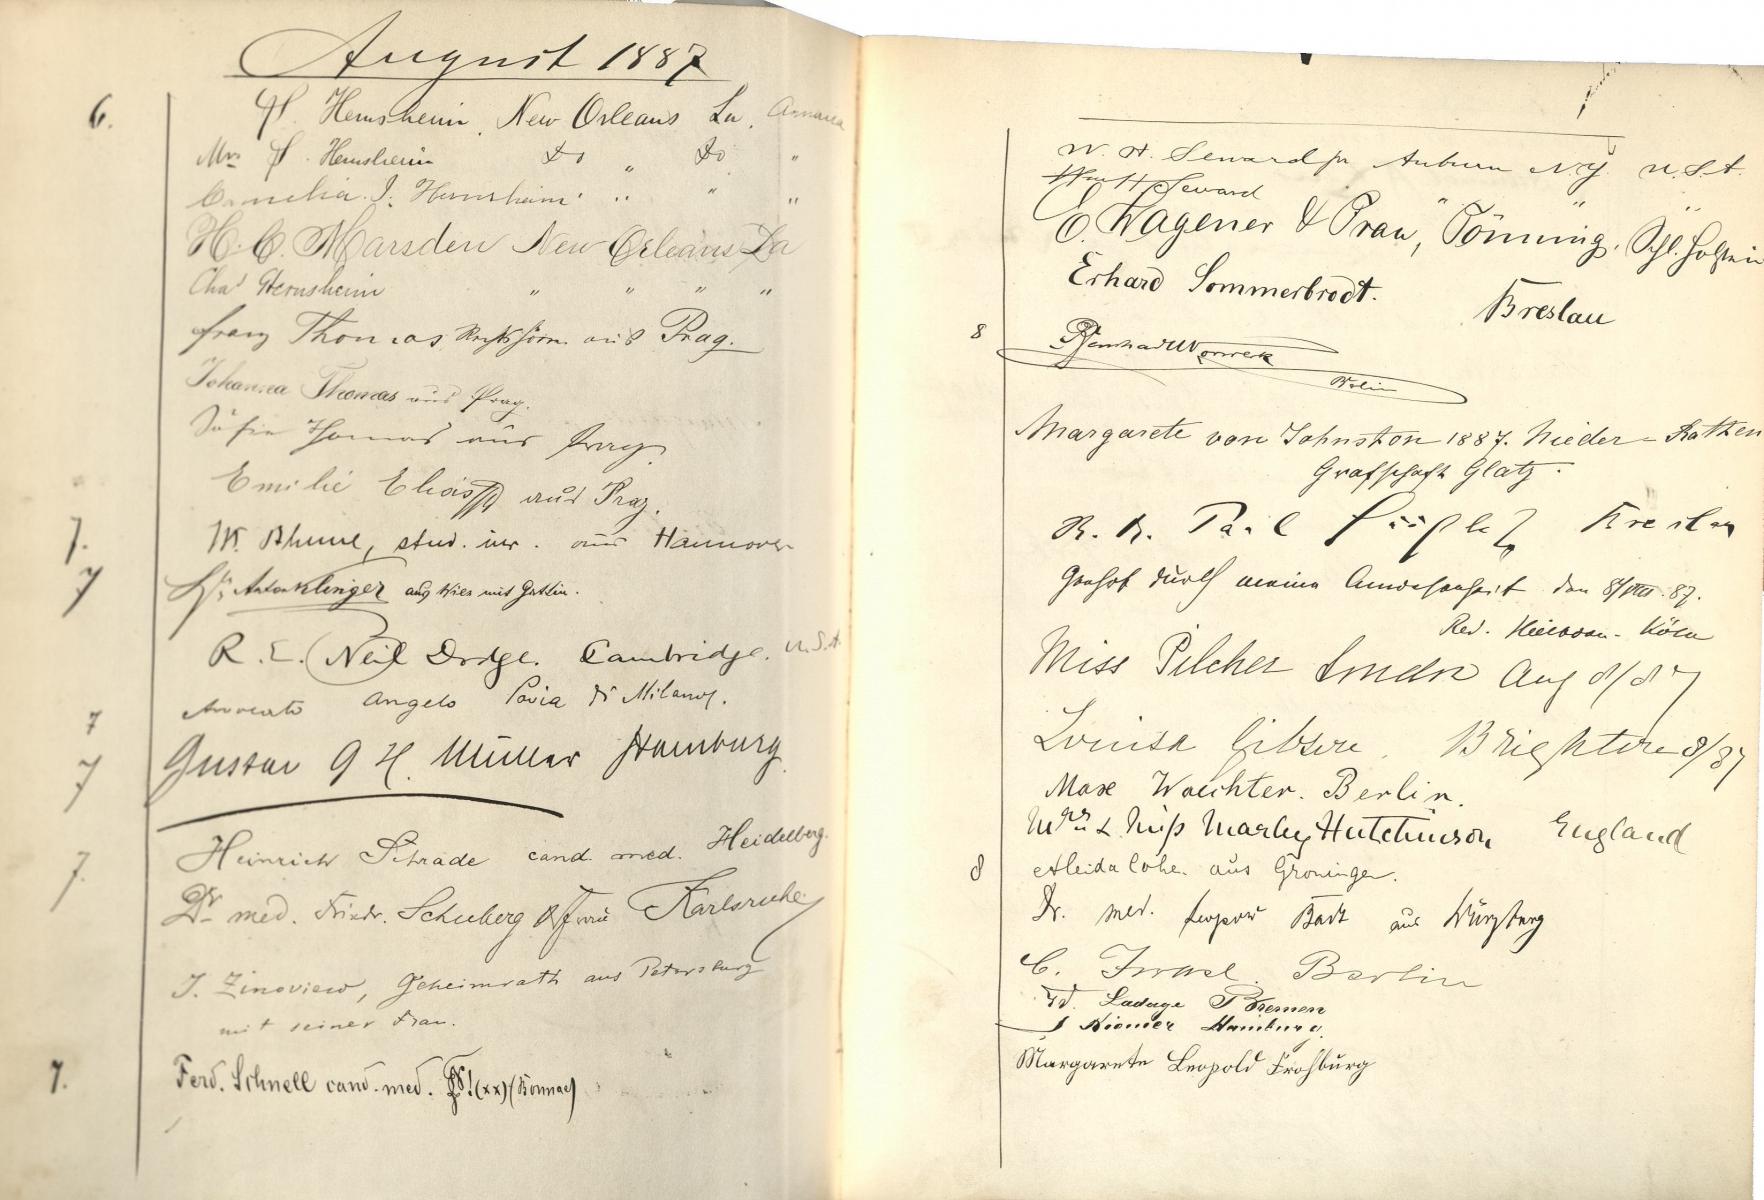 August 1887
6. Hernsheim, New Orleans La. America
Mrs S. Hernsheim do " do "
Cornelia J. Hernsheim " " "
H. C. Marsden New Orleans La
Chas Hernsheim " " " "
Franz Thomas aus Prag.
Johanna Thomas aus Prag.
Thomas aus Prag.
Emilie aus Prag.
7. W. Blume, stud. iur. aus Hannover
7 Anton Klinger aus Wien mit Gattin.
R. E. Neil Dodge. Cambridge. U.S.A.
7 Avvocato Angelo Pavia di Milano.
7 Gustav G H. Müller Hamburg.
7. Heinrich Schrade cand. med. Heidelberg.
Dr med. Friedr. Schuberg & Frau Karlsruhe
J. Zinoview, Geheimrath aus Petersburg
mit seiner Frau.
7. Ferd. Schnell cand. med. (xx)
W. H. Seward jr Auburn N.Y. U.S.A.
Seward " " "
C. Wagener & Frau, Tönning. Schl. Holstein
Erhard Sommerbrodt. Breslau
8 Berlin
Margarete von Johnston 1887. Nieder-Rathen
Grafschaft Glatz.
R. R. Paul Breslau
durch meine Anwesenheit den 8/VIII. 87.
Red. Köln
Miss Pilcher London Aug 8/87
Louisa Gibson. Brighton 8/87
Max Waechter. Berlin.
Mrs & Miss Marley Hutchinson England
8 Aleida Cohen aus Groningen.
Dr. med. Leopold aus Würzburg
C. Israel. Berlin
Fd. Ladage Bremen
Hamburg.
Margarete Leopold Frohburg